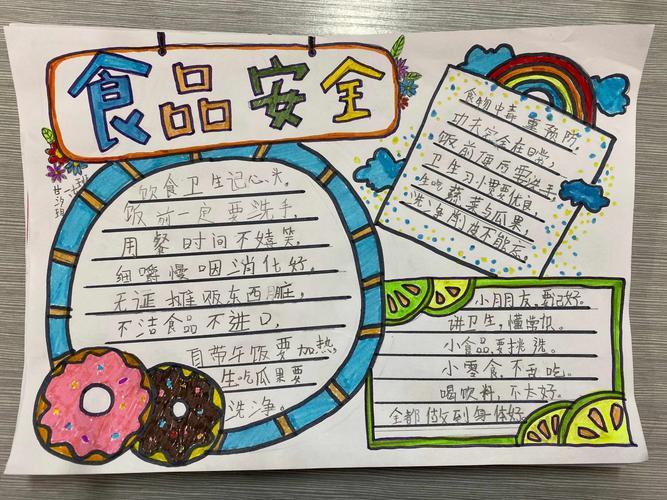 食品安全
饮食卫生记心头。
饭前一定要洗手,
用餐时间不嬉笑。
细嚼慢咽消化好。
无证摊贩东西脏,
不洁食品不进口,
自带午饭要加热
生吃瓜果要
洗净。
食物中毒重预防。
功夫完全在日常。
饭前便后要洗手,
卫生习惯要优良,
生吃蔬菜与瓜果,
洗净削皮不能忘。
小朋友,要记好。
讲卫生,懂常识。
小食品要挑选。
小零食,不乱吃。
喝饮料,不太好。
全都做到身体好。